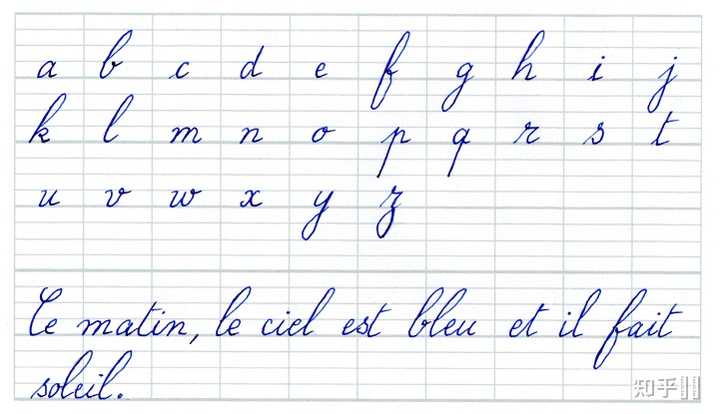 a b c d e f g h i j
k l m n o p q r s t
u v w x y z
Ce matin, le ciel est bleu et il fait
soleil.
知乎